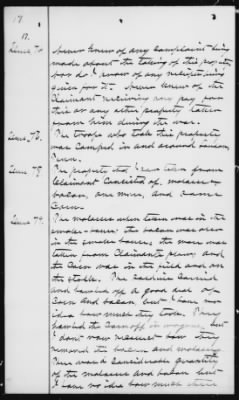 17
17.
Item 70 Never knew of any complaint being
made about the taking of this property
nor do I know of any receipt being
given for it. Never knew of the
Claimant receiving any pay for
this or any other property taken
from him during the war.
Item 73. The troops who took this property
was camped in and around
Tenn.
The property that I saw taken from
Claimant consisted of molasses,
bacon, one mare, and some
Corn.
The molasses when taken was in the
smoke house; the bacon was also
in the smoke house, the mare was
taken from Claimants
the Corn was in the field and on
the stalk. The soldiers carried
and hauled off a good deal of
Corn and bacon but I have no
idea how much they took. They
hauled the Corn off in wagons, but
I dont now recollect how they
removed the bacon and molasses
There was a considerable quantity
of the molasses and bacon but
I have no idea how much there